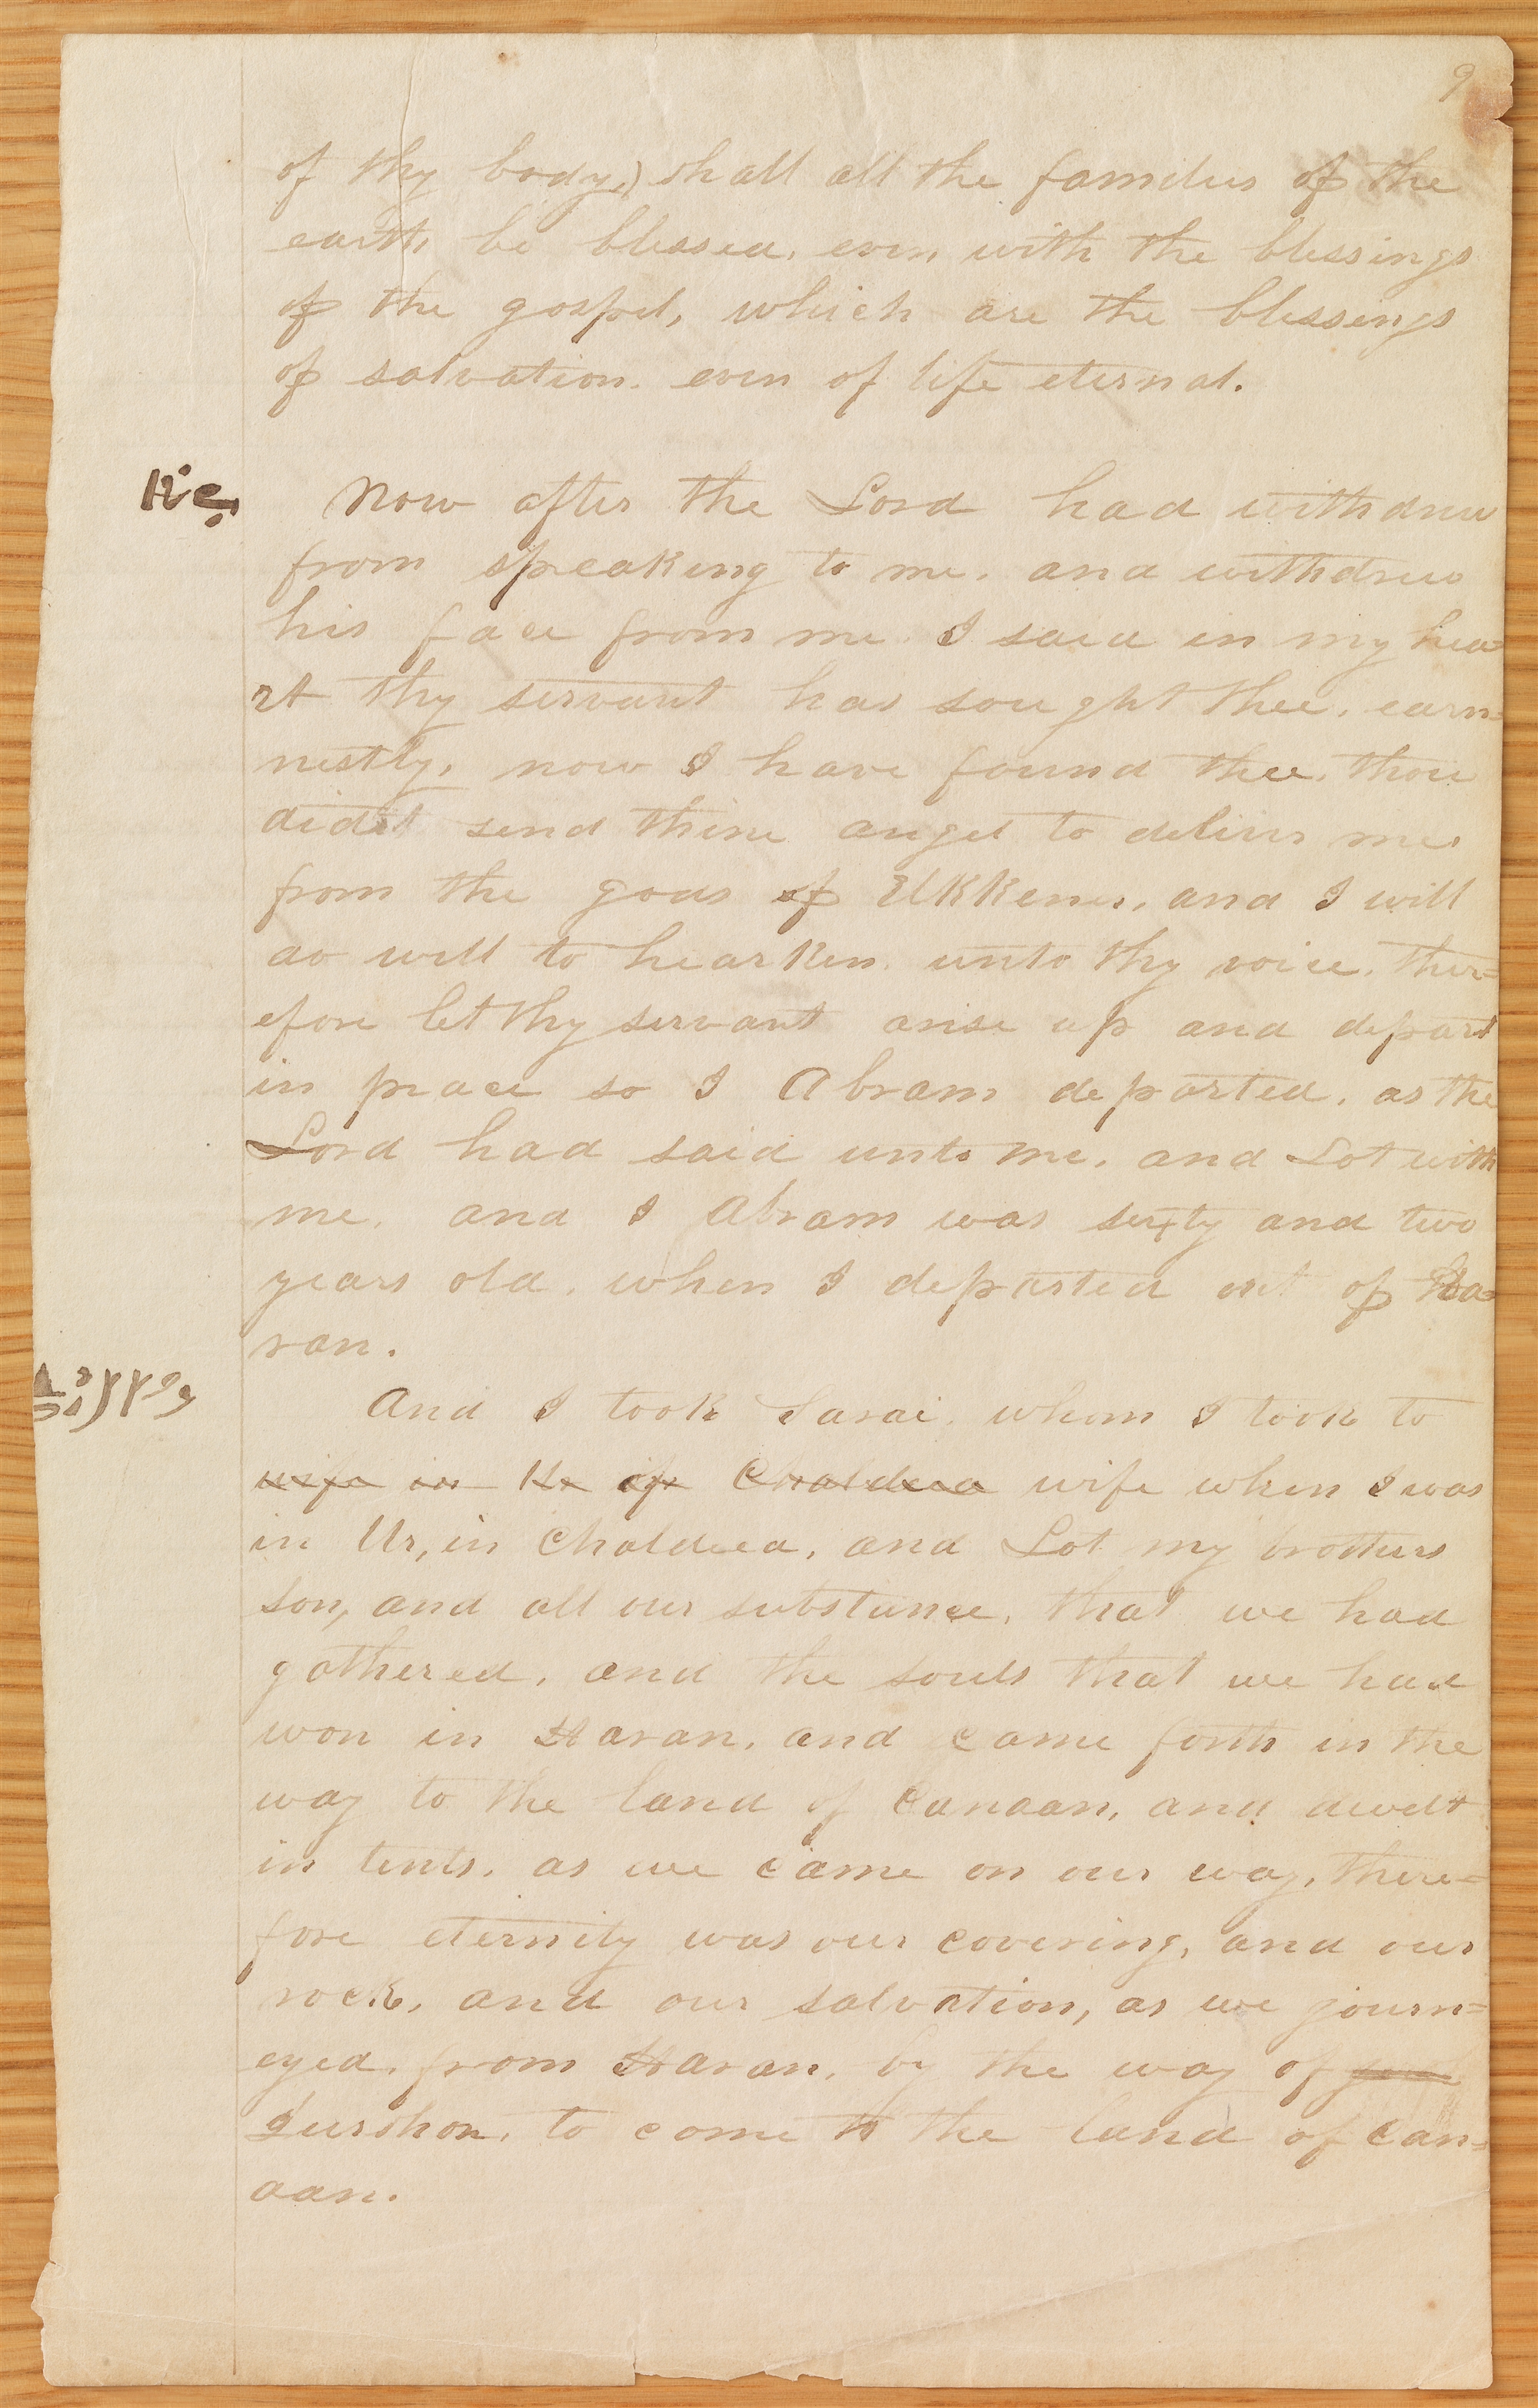 9
of thy body,) shall all the families of the
earth, be blessed, even with the blessings
of the gospel, which are the blessings
of salvation. even of life eternal.
Now after the Lord had withdrew
from speaking to me. and withdrew
his face from me. I said in my hea
rt thy servant has sought thee, earn=
nestly, now I have found thee. thou
didst send thine angel to deliver me
from the gods of Elkkener, and I will
do well to hearken. unto thy voice. ther=
efore let thy servant arise up and depart
in peace so I Abram departed. as the
Lord had said unto me. and Lot with
me. and I Abram was sixty and two
years old. when I departed out of Ha=
ran.
And I took Sarai, whom I took to
wife in Ur of Chaldeea wife when I was
in Ur, in Chaldeea, and Lot my brothers
son, and all our substance, that we had
gathered, and the souls that we had
won in Haran, and came forth in the
way to the land of Canaan, and dwelt
in tents. as we came on our way, there=
fore eternity was our covering, and our
rock, and our salvation, as we journ=
eyed. from Haran, by the way of
Jurshon, to come to the land of Can=
aan.